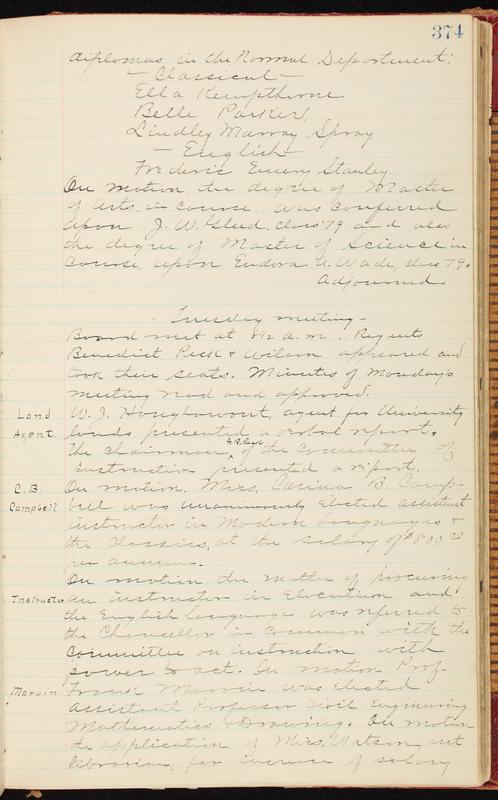 374
diplomas in the Normal Department:
- Classical -
Ella Kempthorne
Belle Parker,
Lindley Murray Spray
- English -
Frederic Emery Stanley.
On motion, the degree of Master
of Arts, in course, was conferred
upon J. W. Gleed, class '79 and also
the degree of Master of Science in
course, upon Eudora A. Wade, class '79.
Adjourned.
- Tuesday meeting -
Board met at 8 1/2 a.m. Regents
Benedict, Peck & Wilson appeared and
took their seats. Minutes of Monday's
meeting read and approved.
Land Agent.
W. J. Houghawout, agent for University
lands presented a verbal report.
The chairman of the committee of
instruction presented a report.
C. B. Campbell
On motion. Miss. Carina B. Camp-
bell was unanimously elected assistant
instructor in Modern Languages &
the Classics, at the salary of $800 00
per annum.
On motion the matter of procuring
Instructor
an instructor in Elocution and
the English language was referred to
the Chancellor in common with the
committee on instruction with
power to act. On motion Prof.
Marvin
Frank Marvin was elected
assistant Professor Civil Engineering
Mathematics & Drawing. On motion
the application of Miss. Watson, asst
librarian, for increase of salary